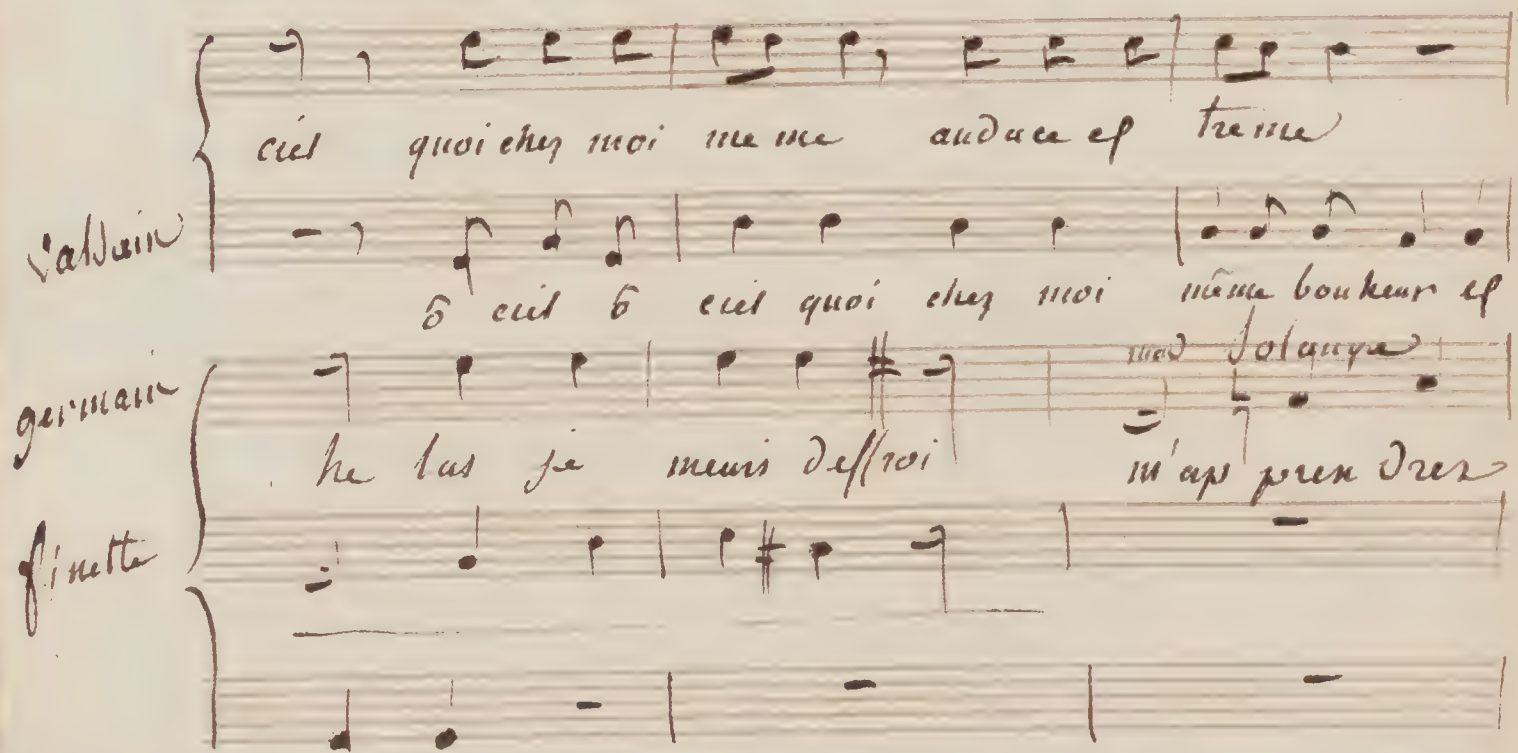 ciel quoi chez moi me me audace ex treme
valsain
ō ciel ō ciel quoi chez moi même bonheur ex
germain
mad Solange
he las je meurs deffroi m'ap pren drez
finette